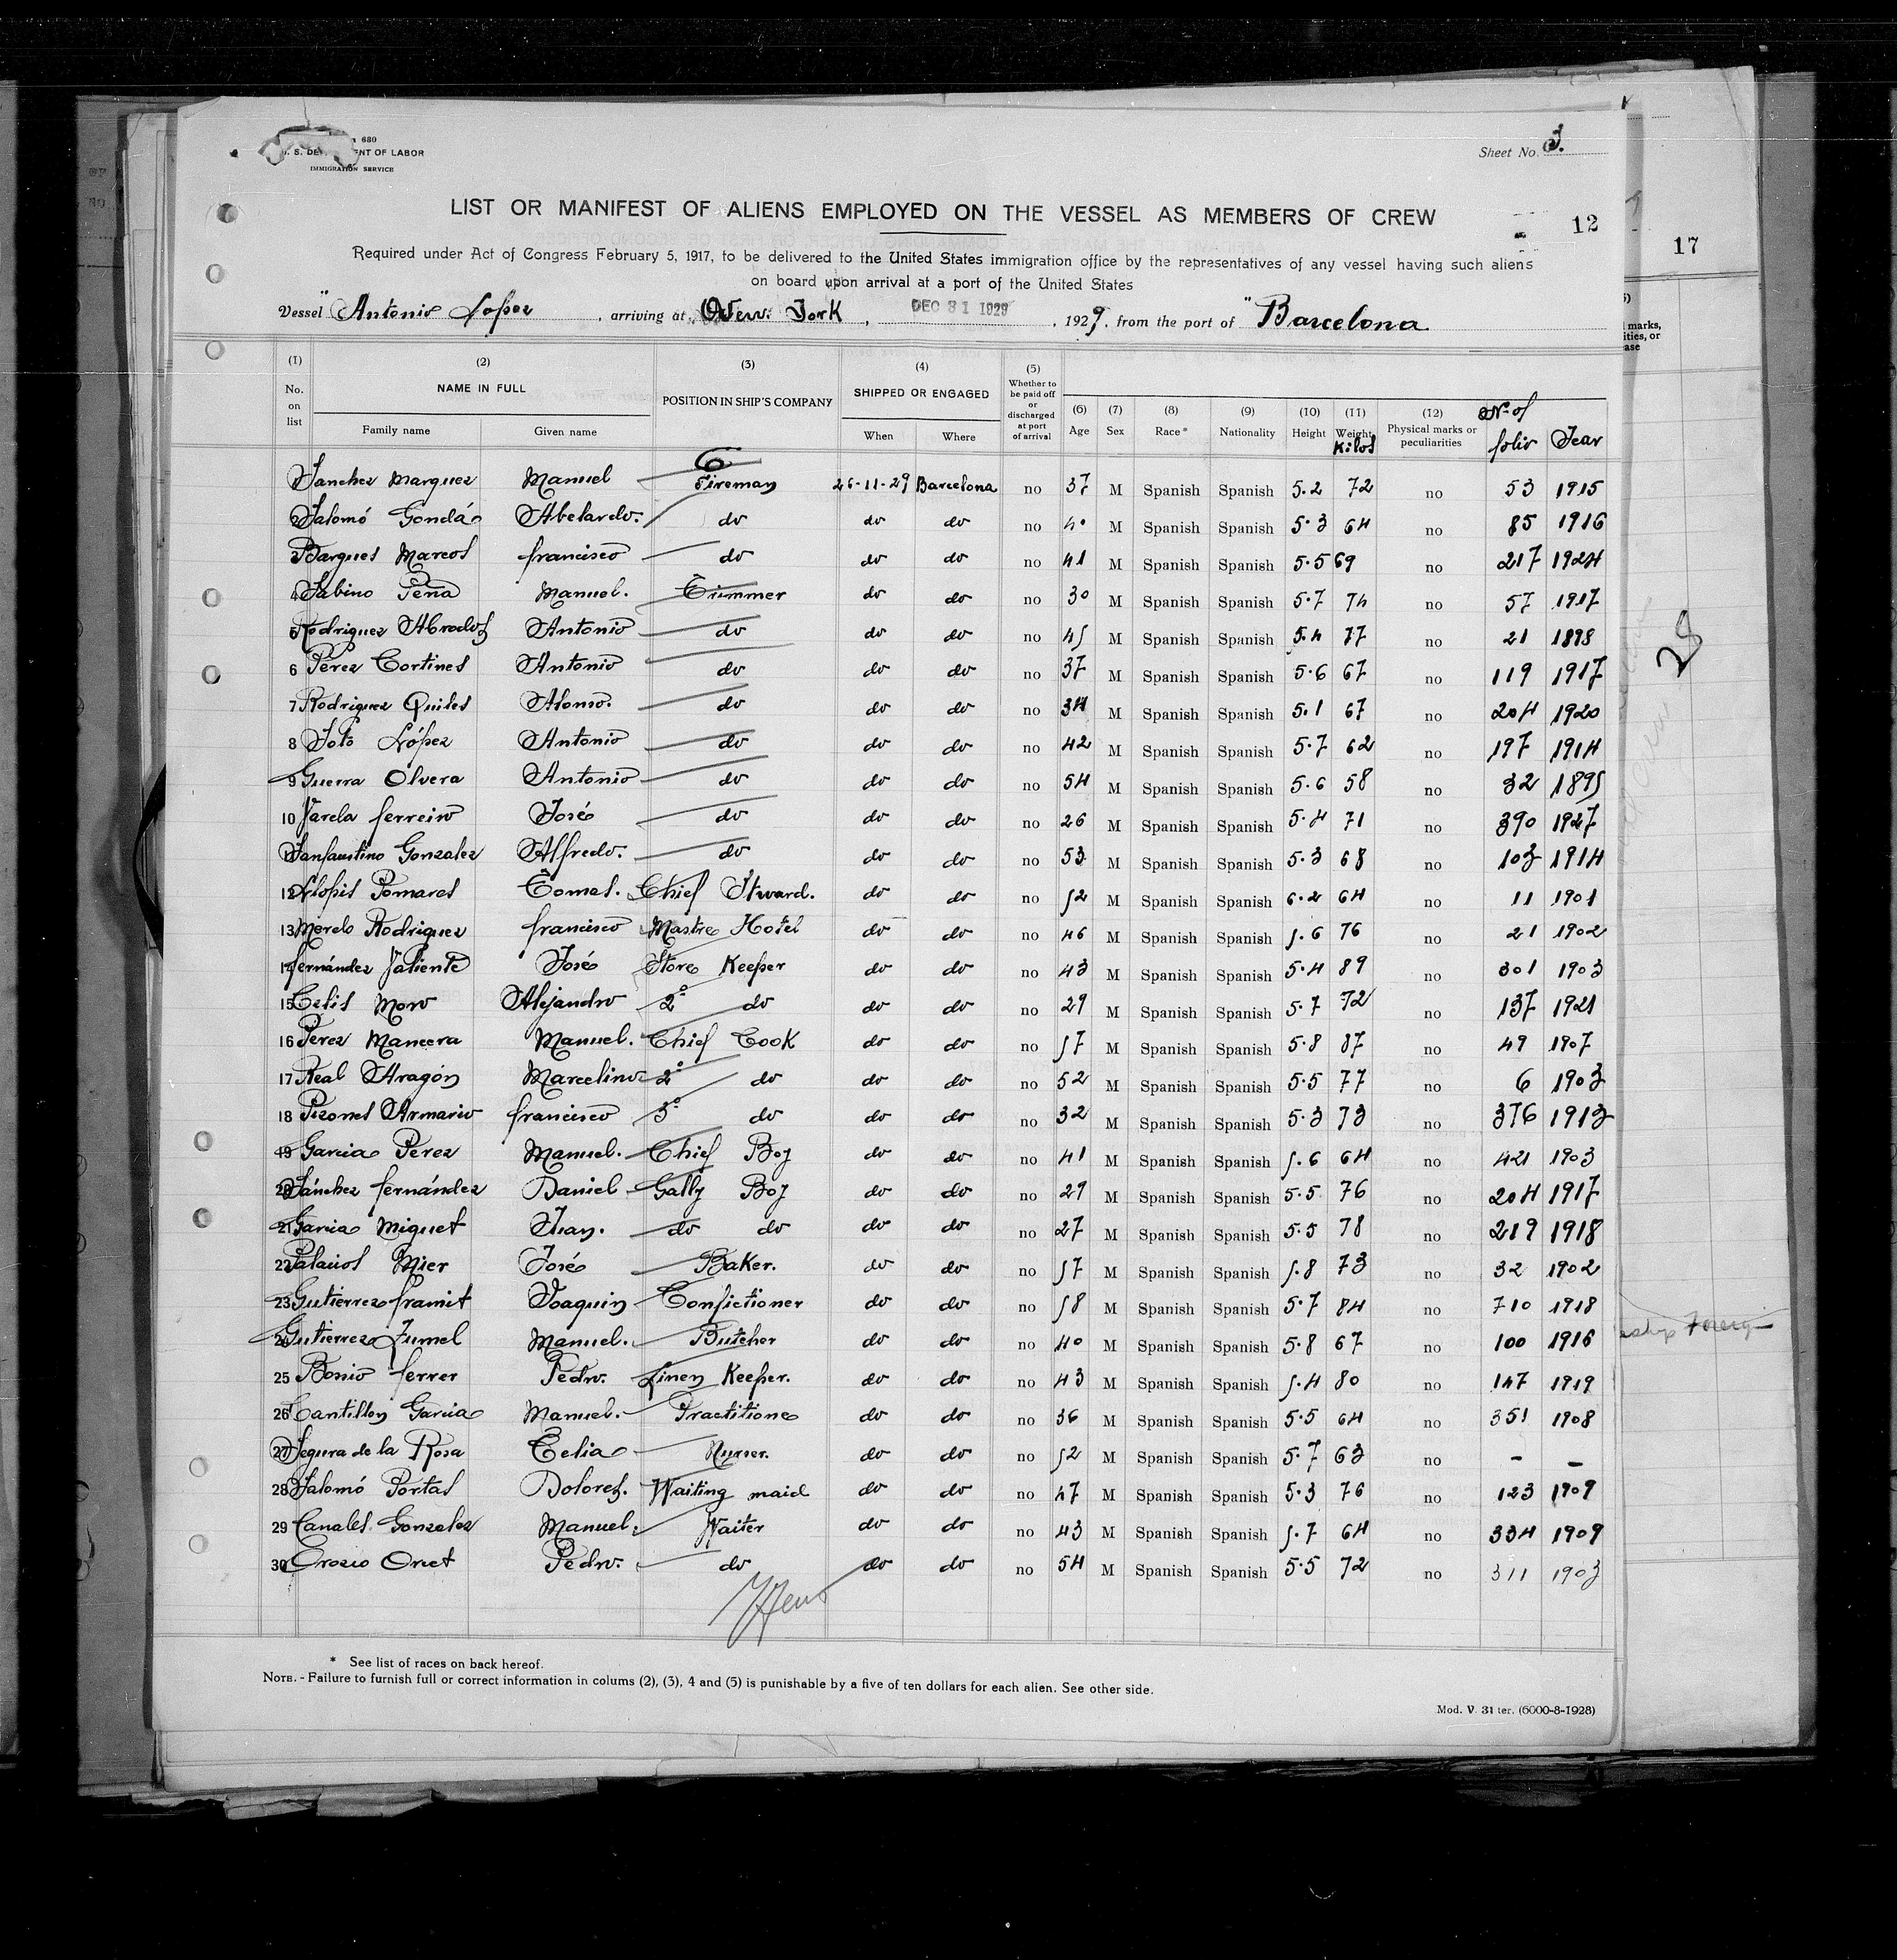 680
NT OF LABOR
IMMIGRATION SERVICE
Sheet No. 3.
LIST OR MANIFEST OF ALIENS EMPLOYED ON THE VESSEL AS MEMBERS OF CREW
12
17
Required under Act of Congress February 5, 1917, to be delivered to the United States immigration office by the representatives of any vessel having such aliens
on board upon arrival at a port of the United States
Vessel "Antonio Lopez , arriving at New York , DEC 31 1929 , 1929, from the port of "Barcelona
(1) (2) (3) (4) (5) (6) (7) (8) (9) (10) (11) (12)
No. on list NAME IN FULL Family name Given name POSITION IN SHIP'S COMPANY SHIPPED OR ENGAGED When Where Whether to be paid off or discharged at port of arrival Age Sex Race * Nationality Height Weight Kilos Physical marks or peculiarities Nº of folio Year
1 Sanchez Marquez Manuel Fireman 26-11-29 Barcelona no 37 M Spanish Spanish 5.2 72 no 53 1915
2 Salomó Gondá Abelardo. do do do no 40 M Spanish Spanish 5.3 64 no 85 1916
3 Barques Marcos francisco do do do no 41 M Spanish Spanish 5.5 69 no 217 1924
4 Sabino Peña Manuel. Trimmer do do no 30 M Spanish Spanish 5.7 74 no 57 1917
5 Rodriguez Antonio do do do no 45 M Spanish Spanish 5.4 77 no 21 1898
6 Pérez Cortines Antonio do do do no 37 M Spanish Spanish 5.6 67 no 119 1917
7 Rodriguez Quiles Alonso. do do do no 34 M Spanish Spanish 5.1 67 no 204 1920
8 Soto López Antonio do do do no 42 M Spanish Spanish 5.7 62 no 197 1914
9 Guerra Olvera Antonio do do do no 54 M Spanish Spanish 5.6 58 no 32 1895
10 Varela ferreiro José do do do no 26 M Spanish Spanish 5.4 71 no 390 1927
11 Sanfaustino Gonzalez Alfredo. do do do no 53 M Spanish Spanish 5.3 68 no 103 1914
12 Llopis Pomares Tomas. Chief Stward. do do no 52 M Spanish Spanish 6.2 64 no 11 1901
13 Merelo Rodriguez francisco Mastre Hotel do do no 46 M Spanish Spanish 5.6 76 no 21 1902
14 fernández Valiente José Store Keeper do do no 43 M Spanish Spanish 5.4 89 no 301 1903
15 Celis Moro Alejandro 2º do do do no 29 M Spanish Spanish 5.7 72 no 137 1921
16 Pérez Mancera Manuel. Chief Cook do do no 57 M Spanish Spanish 5.8 87 no 49 1907
17 Real Aragón Marcelino 2º do do do no 52 M Spanish Spanish 5.5 77 no 6 1903
18 Pizones Armario francisco 3º do do do no 32 M Spanish Spanish 5.3 73 no 376 1913
19 Garcia Perez Manuel. Chief Boy do do no 41 M Spanish Spanish 5.6 64 no 421 1903
20 Sánchez fernández Daniel Gally Boy do do no 29 M Spanish Spanish 5.5 76 no 204 1917
21 Garcia Miguet Juan. do do do do no 27 M Spanish Spanish 5.5 78 no 219 1918
22 Palacios Mier José Baker. do do no 57 M Spanish Spanish 5.8 73 no 32 1902
23 Gutierrez framit Joaquin Confictioner do do no 58 M Spanish Spanish 5.7 84 no 710 1918
24 Gutierrez Jumel Manuel. Butcher do do no 40 M Spanish Spanish 5.8 67 no 100 1916
25 Bonio ferrer Pedro. Linen Keeper. do do no 43 M Spanish Spanish 5.4 80 no 147 1919
26 Cantillon Garcia Manuel. Practitione do do no 36 M Spanish Spanish 5.5 64 no 351 1908
27 Segura de la Rosa Celia Nurser. do do no 52 M Spanish Spanish 5.7 63 no - -
28 Salomó Portas Dolorez. Waiting maid do do no 47 M Spanish Spanish 5.3 76 no 123 1909
29 Canales Gonzalez Manuel. Waiter do do no 43 M Spanish Spanish 5.7 64 no 334 1909
30 Orozco Oncet Pedro. do do do no 54 M Spanish Spanish 5.5 72 no 311 1903
* See list of races on back hereof.
NOTE. - Failure to furnish full or correct information in colums (2), (3), 4 and (5) is punishable by a five of ten dollars for each alien. See other side.
Mod. V. 31 ter. (6000-8-1928)
marks,
ities, or
ase
28